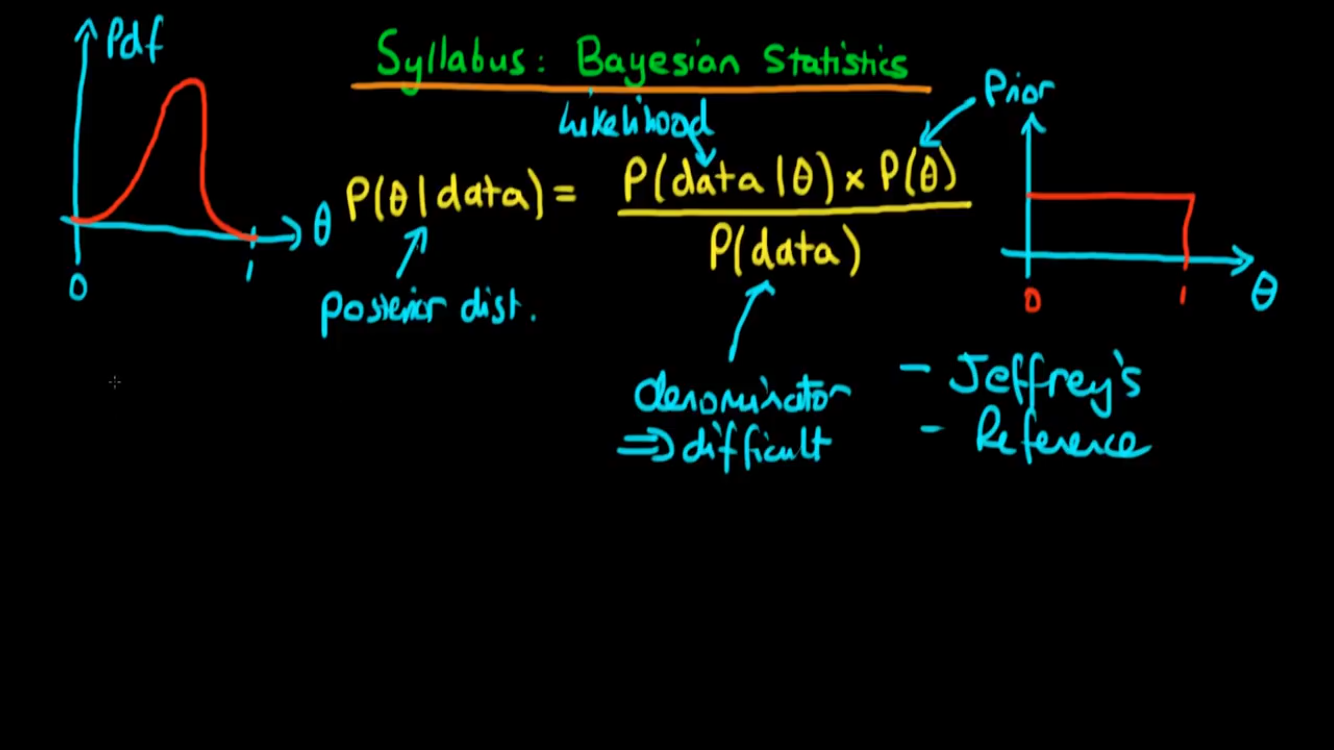 Pdf
Syllabus: Bayesian Statistics
Likelihood
Prior
P(θ|data) = P(data|θ) × P(θ)
P(data)
θ
0
1
posterior dist.
0
1
θ
denominator
⇒ difficult
- Jeffrey's
- Reference